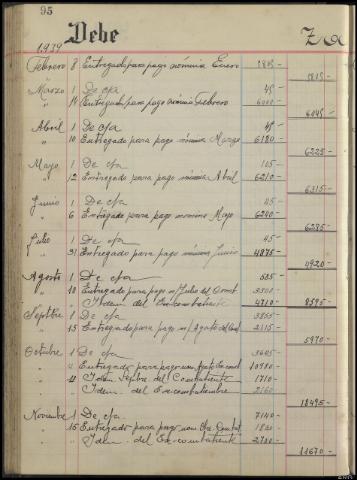 95
Debe
Za
1939
Febrero 8 Entregado para pago nómina Enero 1815-
1815-
Marzo 1 De c/a 45-
" 14 Entregado para pago nómina Febrero 6000-
6045-
Abril 1 De c/a 45-
" 10 Entregado para pago nómina Marzo 6180-
6225-
Mayo 1 De c/a 105-
" 12 Entregado para pago nómina Abril 6210-
6315-
Junio 1 De c/a 45-
" 6 Entregado para pago nomina Mayo 6240-
6285-
Julio 1 De c/a 45-
" 31 Entregado para pago nómina Junio 4875-
4920-
Agosto 1 De c/a 535-
" 18 Entregado para pago n/ Julio del Comt
" Idem. del Ex-combatiente 4710- 8595-
Septbre 1 De c/a 3855-
" 15 Entregado para pago n/ Agosto del 2115-
5970-
Octubre 1 De c/a
" Entregado para pago nom Agosto
" 11 Idem Septbre del Combatiente 1710-
" Idem. del Ex-combatiente 2160-
18495-
Noviembre 1 De c/a. 7140-
" 15 Entregado para pago nom
Idem. del Ex-combatiente
11670-